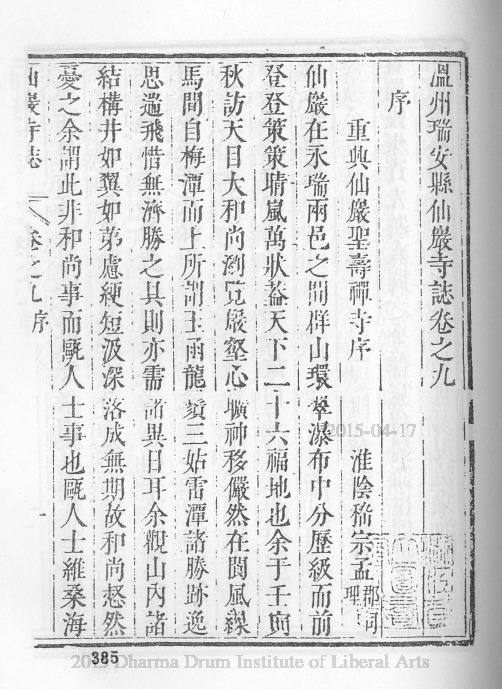 溫州瑞安縣仙巖寺誌卷之九
序
重興仙巖聖壽禪寺序 淮陰嵇宗孟 郡司理
仙巖在永瑞兩邑之間群山環翠瀑布中分歷級而前
登登策策晴嵐萬狀葢天下二十六福地也余于壬寅
秋訪天目大和尚瀏覧巖壑心曠神移儼然在閬風縣
馬間自梅潭而上所謂玉函龍鬚三姑雷潭諸勝跡逸
思遄飛惜無濟勝之具則亦需諸異日耳余觀山內諸
結構井如翼如第慮綆短汲深落成無期故和尚惄然
憂之余謂此非和尚事而甌人士事也甌人士維桑海
仙巖寺誌 卷之九 序 一
385
2015-04-17
Dharma Drum Institute of Liberal Arts